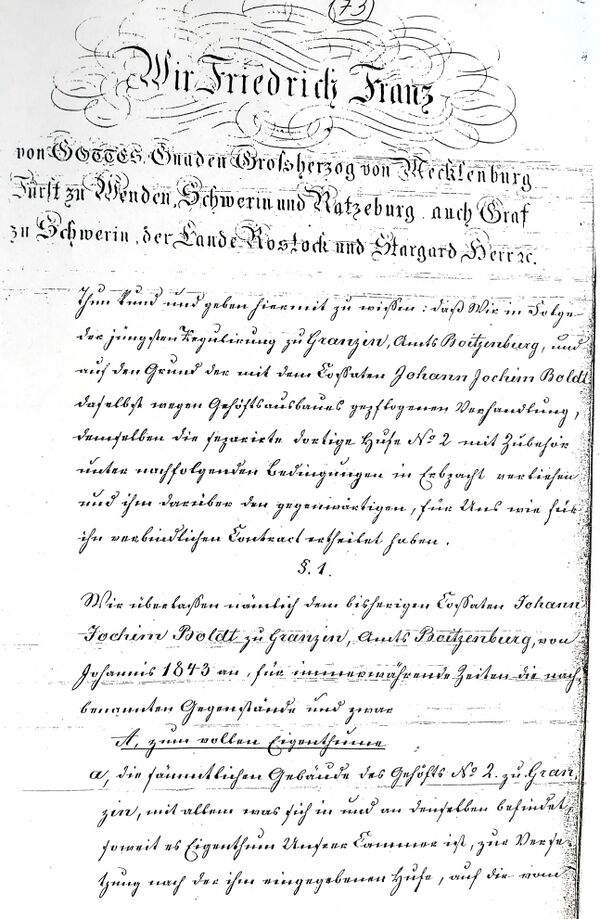 (73)
Wir Friedrich Franz
von GOTTES Gnaden Großherzog von Mecklenburg
Fürst zu Wenden, Schwerin und Ratzeburg auch Graf
zu Schwerin, der Lande Rostock und Stargard Herr ꝛc.
Thun kund und geben hiermit zu wissen: daß Wir in Folge
der jüngsten Regulirung zu Granzin, Amts Boitzenburg, und
auf den Grund der mit dem Cossaten Johann Jochim Boldt
daselbst wegen Gehöftsausbaues gepflogenen Verhandlung,
demselben die separirte dortige Hufe No 2 mit Zubehör
unter nachfolgenden Bedingungen in Erbpacht verliehen
und ihm darüber den gegenwärtigen, für Uns wie für
ihn verbindlichen Contract ertheilet haben.
§. 1.
Wir überlassen nämlich dem bisherigen Cossaten Johann
Jochim Boldt zu Granzin, Amts Boitzenburg, von
Johannis 1843 an, für immerwährende Zeiten die nach
benannten Gegenstände und zwar
A, zum vollen Eigenthume
a, die sämmtlichen Gebäude des Gehöfts No 2. zu Gran
zin, mit allem was sich in und an denselben befindet,
soweit es Eigenthum Unsrer Cammer ist, zur Verse
tzung nach der ihm eingegebenen Hufe, auf die vom